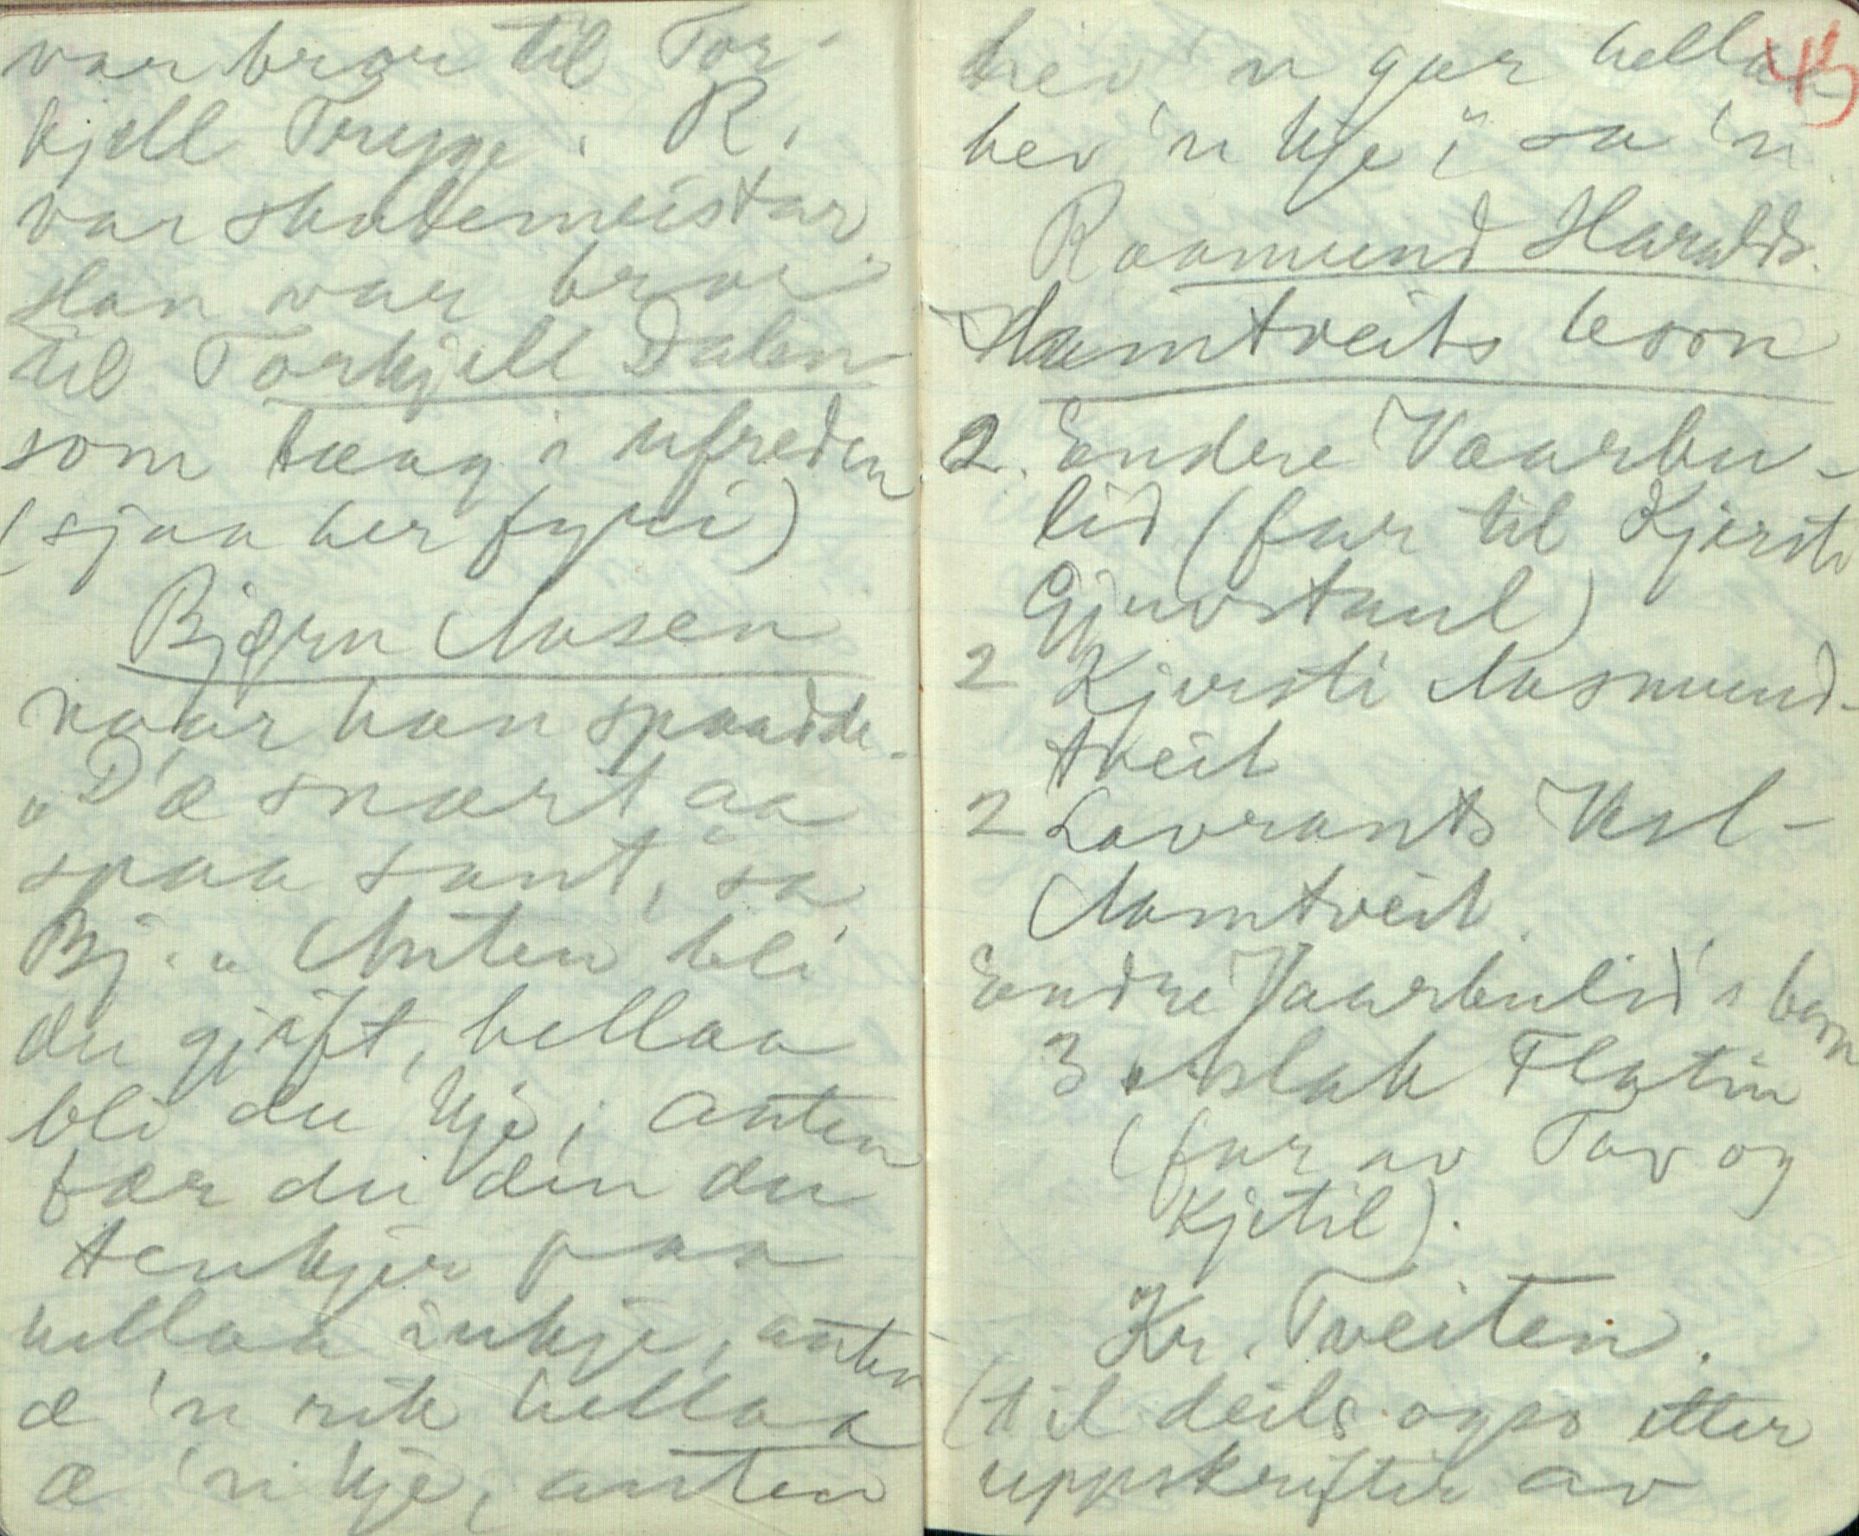 var bror til Tor-
kjell Trygge. R.
var skolemeistar.
Han var bror
til Torkjell Dalen
som tæng i ufreden
(sjaa her fyri)
Bjørn Aasen
naar han spaadde.
"D'æ snært aa
spaa sant," sa
Bj. "Anten bli
du gjift, hellaa
bli du kje, anten
fær du din du
tenkjer paa
hellaa inkje, anten
æ 'n rik hellaa
æ 'n kje, anten
45
hev 'n gar hellaa
hev 'n kje," sa 'n.
Raamund Haralds.
Aamtveits born
2. Endre Vaarbu-
lid (far til Kjersti
Gjuvstaul)
2 Kjersti Aasmund-
tveit
2 Lavrants Vesl-
Aamtveit.
Endre Vaarbulid's born
3 Aslak Flatin
(far av Tov og
Kjetil).
Kr. Tveiten.
(til deils ogso etter
uppskrifter av